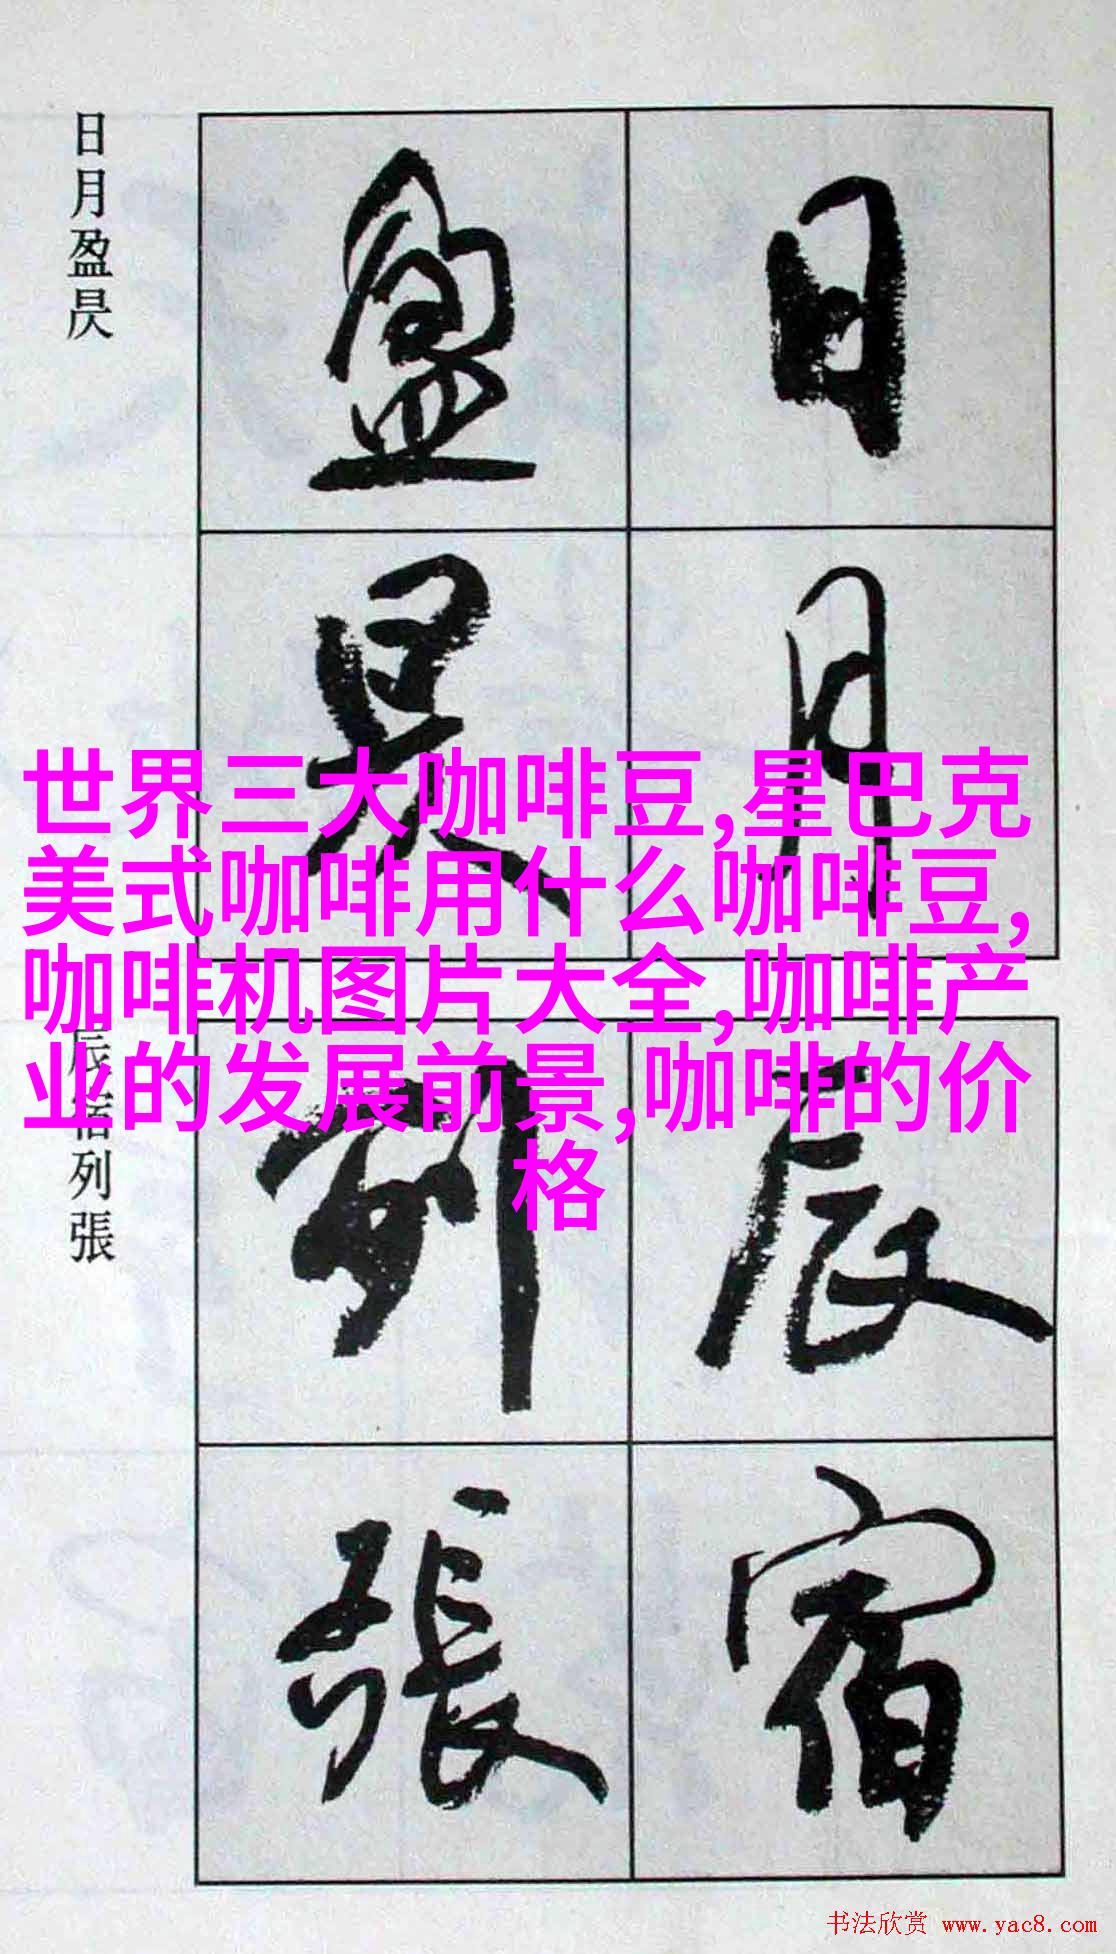 日月盈昃
日月
盈昃
世界三大咖啡豆,星巴克
美式咖啡用什么咖啡豆,
咖啡机图片大全,咖啡产
业的发展前景,咖啡的价
格
辰宿列張
辰宿
列張
书法欣赏 www.yac8.com